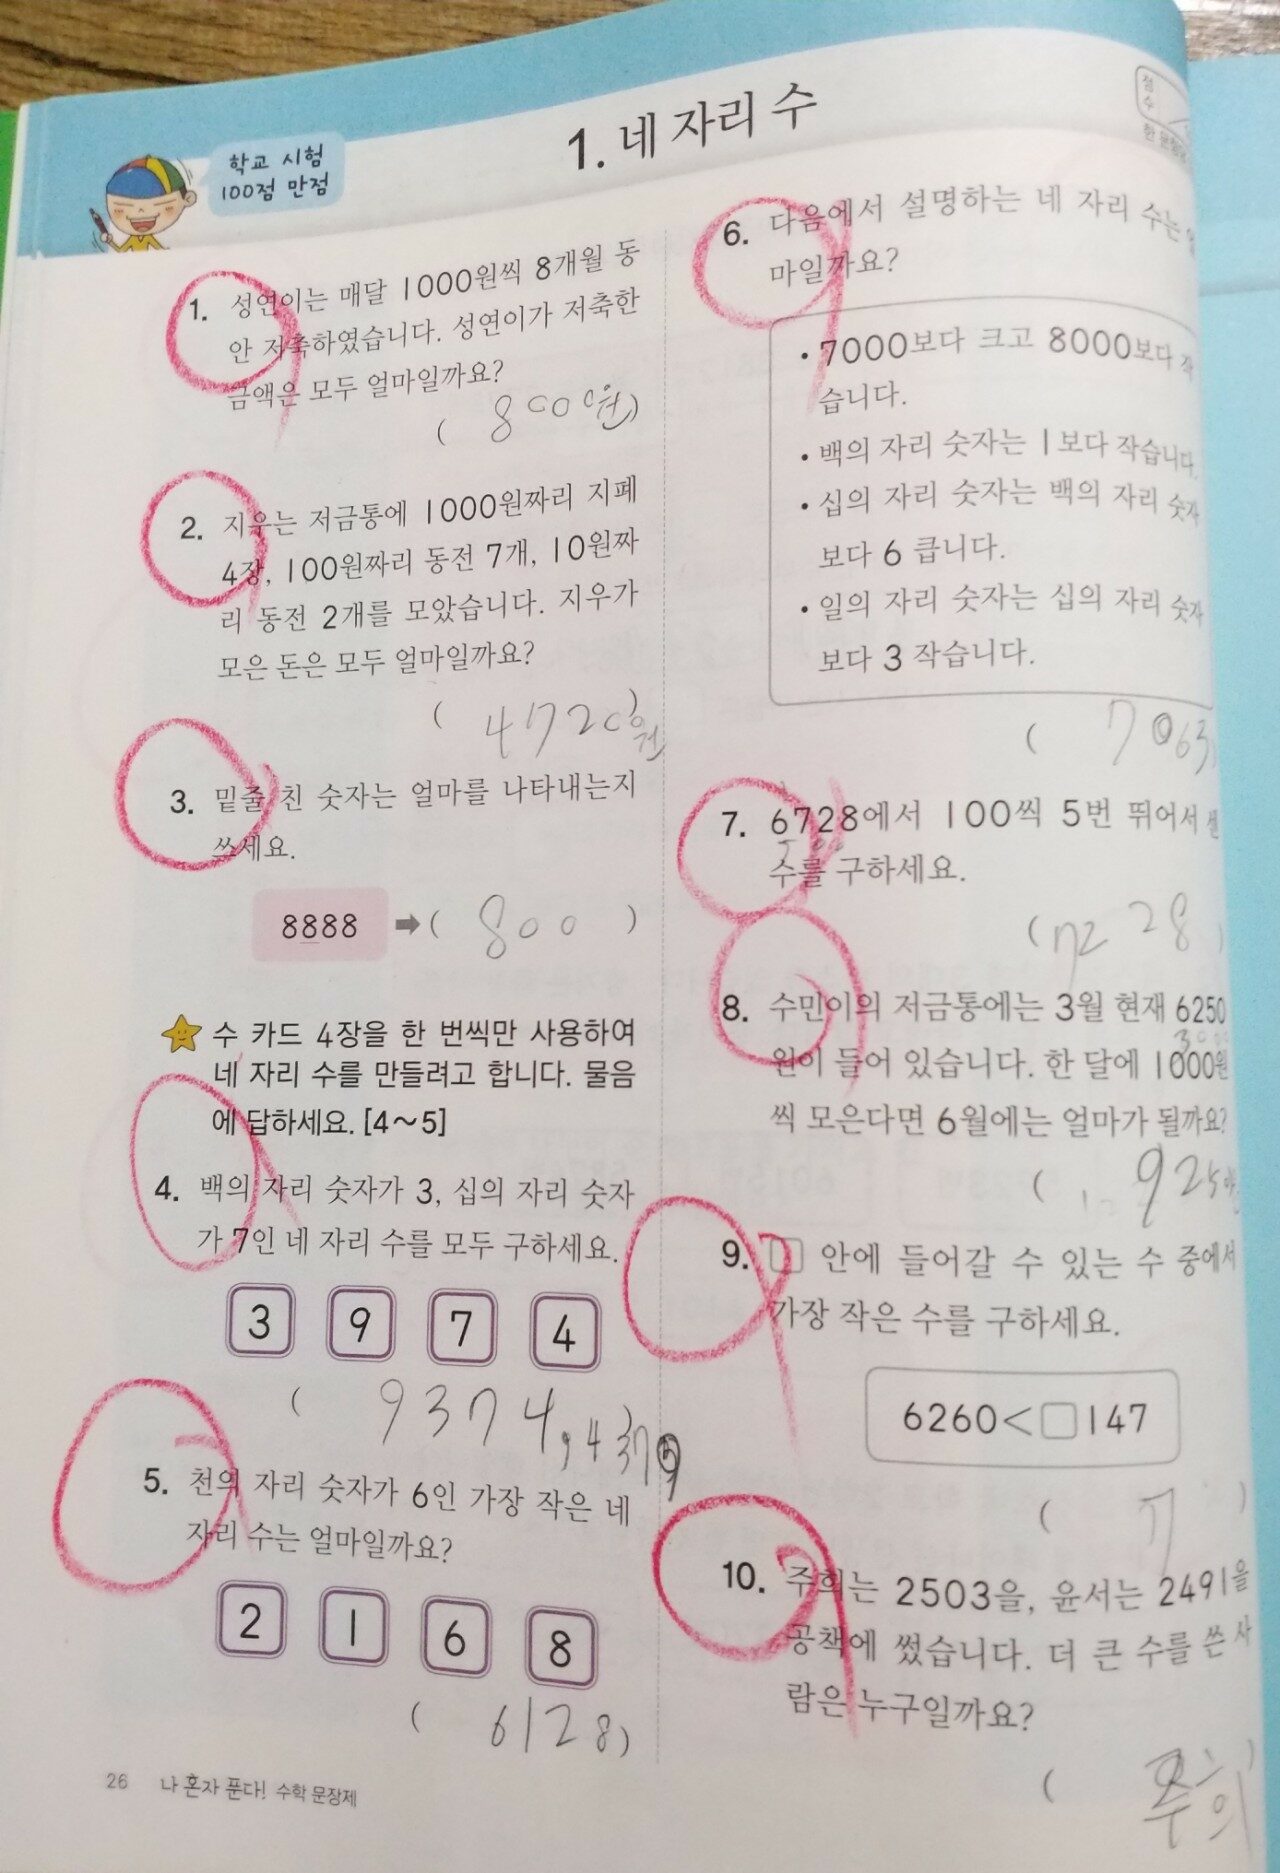 1. 네 자리 수
학교 시험
100점 만점
점
수
한 문
1. 성연이는 매달 1000원씩 8개월 동
안 저축하였습니다. 성연이가 저축한
금액은 모두 얼마일까요?
( 8000원)
2. 지우는 저금통에 1000원짜리 지폐
4장, 100원짜리 동전 7개, 10원짜
리 동전 2개를 모았습니다. 지우가
모은 돈은 모두 얼마일까요?
( 4720원)
3. 밑줄 친 숫자는 얼마를 나타내는지
쓰세요.
8888 ➡ ( 800 )
수 카드 4장을 한 번씩만 사용하여
네 자리 수를 만들려고 합니다. 물음
에 답하세요. [4~5]
4. 백의 자리 숫자가 3, 십의 자리 숫자
가 7인 네 자리 수를 모두 구하세요.
3 9 7 4
( 9374, 4379)
5. 천의 자리 숫자가 6인 가장 작은 네
자리 수는 얼마일까요?
2 1 6 8
( 6128)
26 나 혼자 푼다! 수학 문장제
6. 다음에서 설명하는 네 자리 수는 얼
마일까요?
• 7000보다 크고 8000보다 작
습니다.
• 백의 자리 숫자는 1보다 작습니다.
• 십의 자리 숫자는 백의 자리 숫자
보다 6 큽니다.
• 일의 자리 숫자는 십의 자리 숫자
보다 3 작습니다.
( 7063)
7. 6728에서 100씩 5번 뛰어서 센
수를 구하세요.
( 7228 )
8. 수민이의 저금통에는 3월 현재 6250
원이 들어 있습니다. 한 달에 1000원
씩 모은다면 6월에는 얼마가 될까요?
( 9250
9. □ 안에 들어갈 수 있는 수 중에서
가장 작은 수를 구하세요.
6260<□147
( 7 )
10. 주희는 2503을, 윤서는 2491을
공책에 썼습니다. 더 큰 수를 쓴 사
람은 누구일까요?
( 주희)